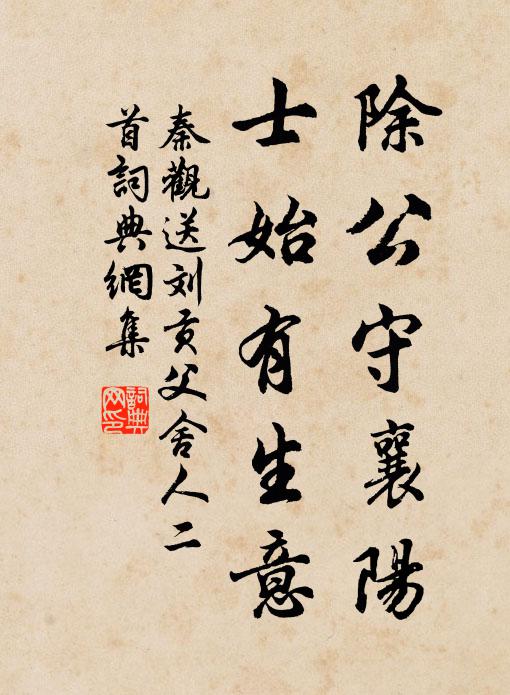 除公守襄陽
士始有生意
秦觀送刘贡父舍人二
首詞典網集
詞典
网印